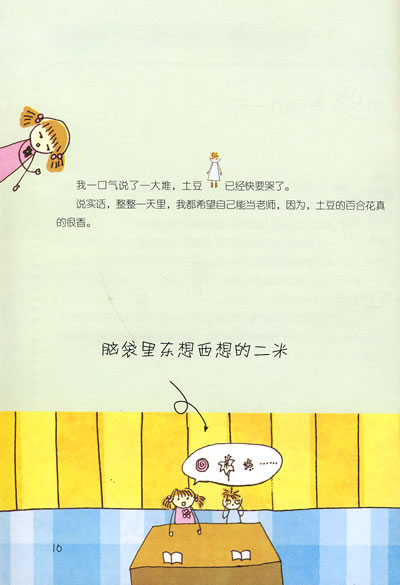 我一口气说了一大堆，土豆 已经快要哭了。
说实话，整整一天里，我都希望自己能当老师，因为，土豆的百合花真
的很香。
脑袋里东想西想的二米
……
16